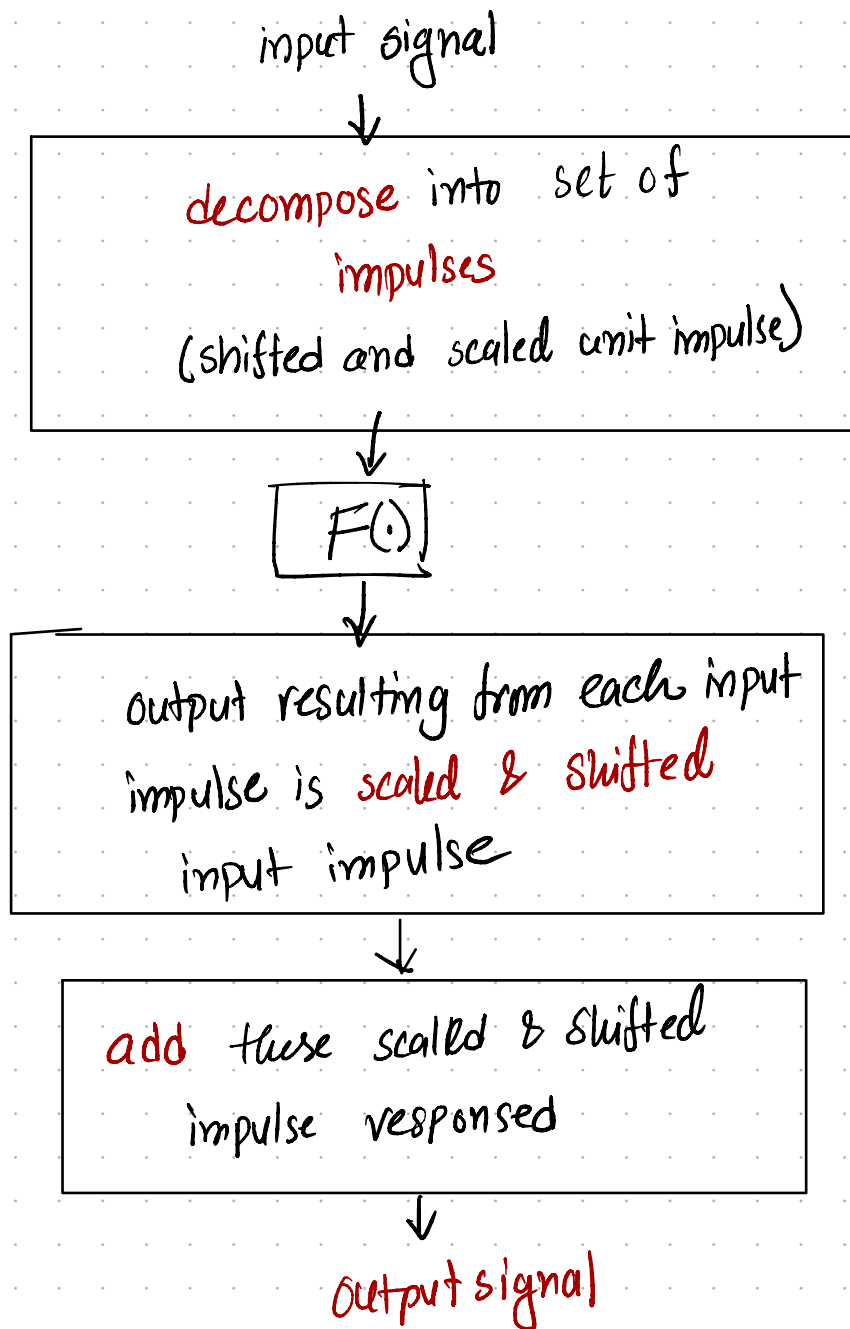 input signal
decompose into set of
impulses
(shifted and scaled unit impulse)
F(·)
output resulting from each input
impulse is scaled & shifted
input impulse
add these scaled & shifted
impulse responsed
output signal